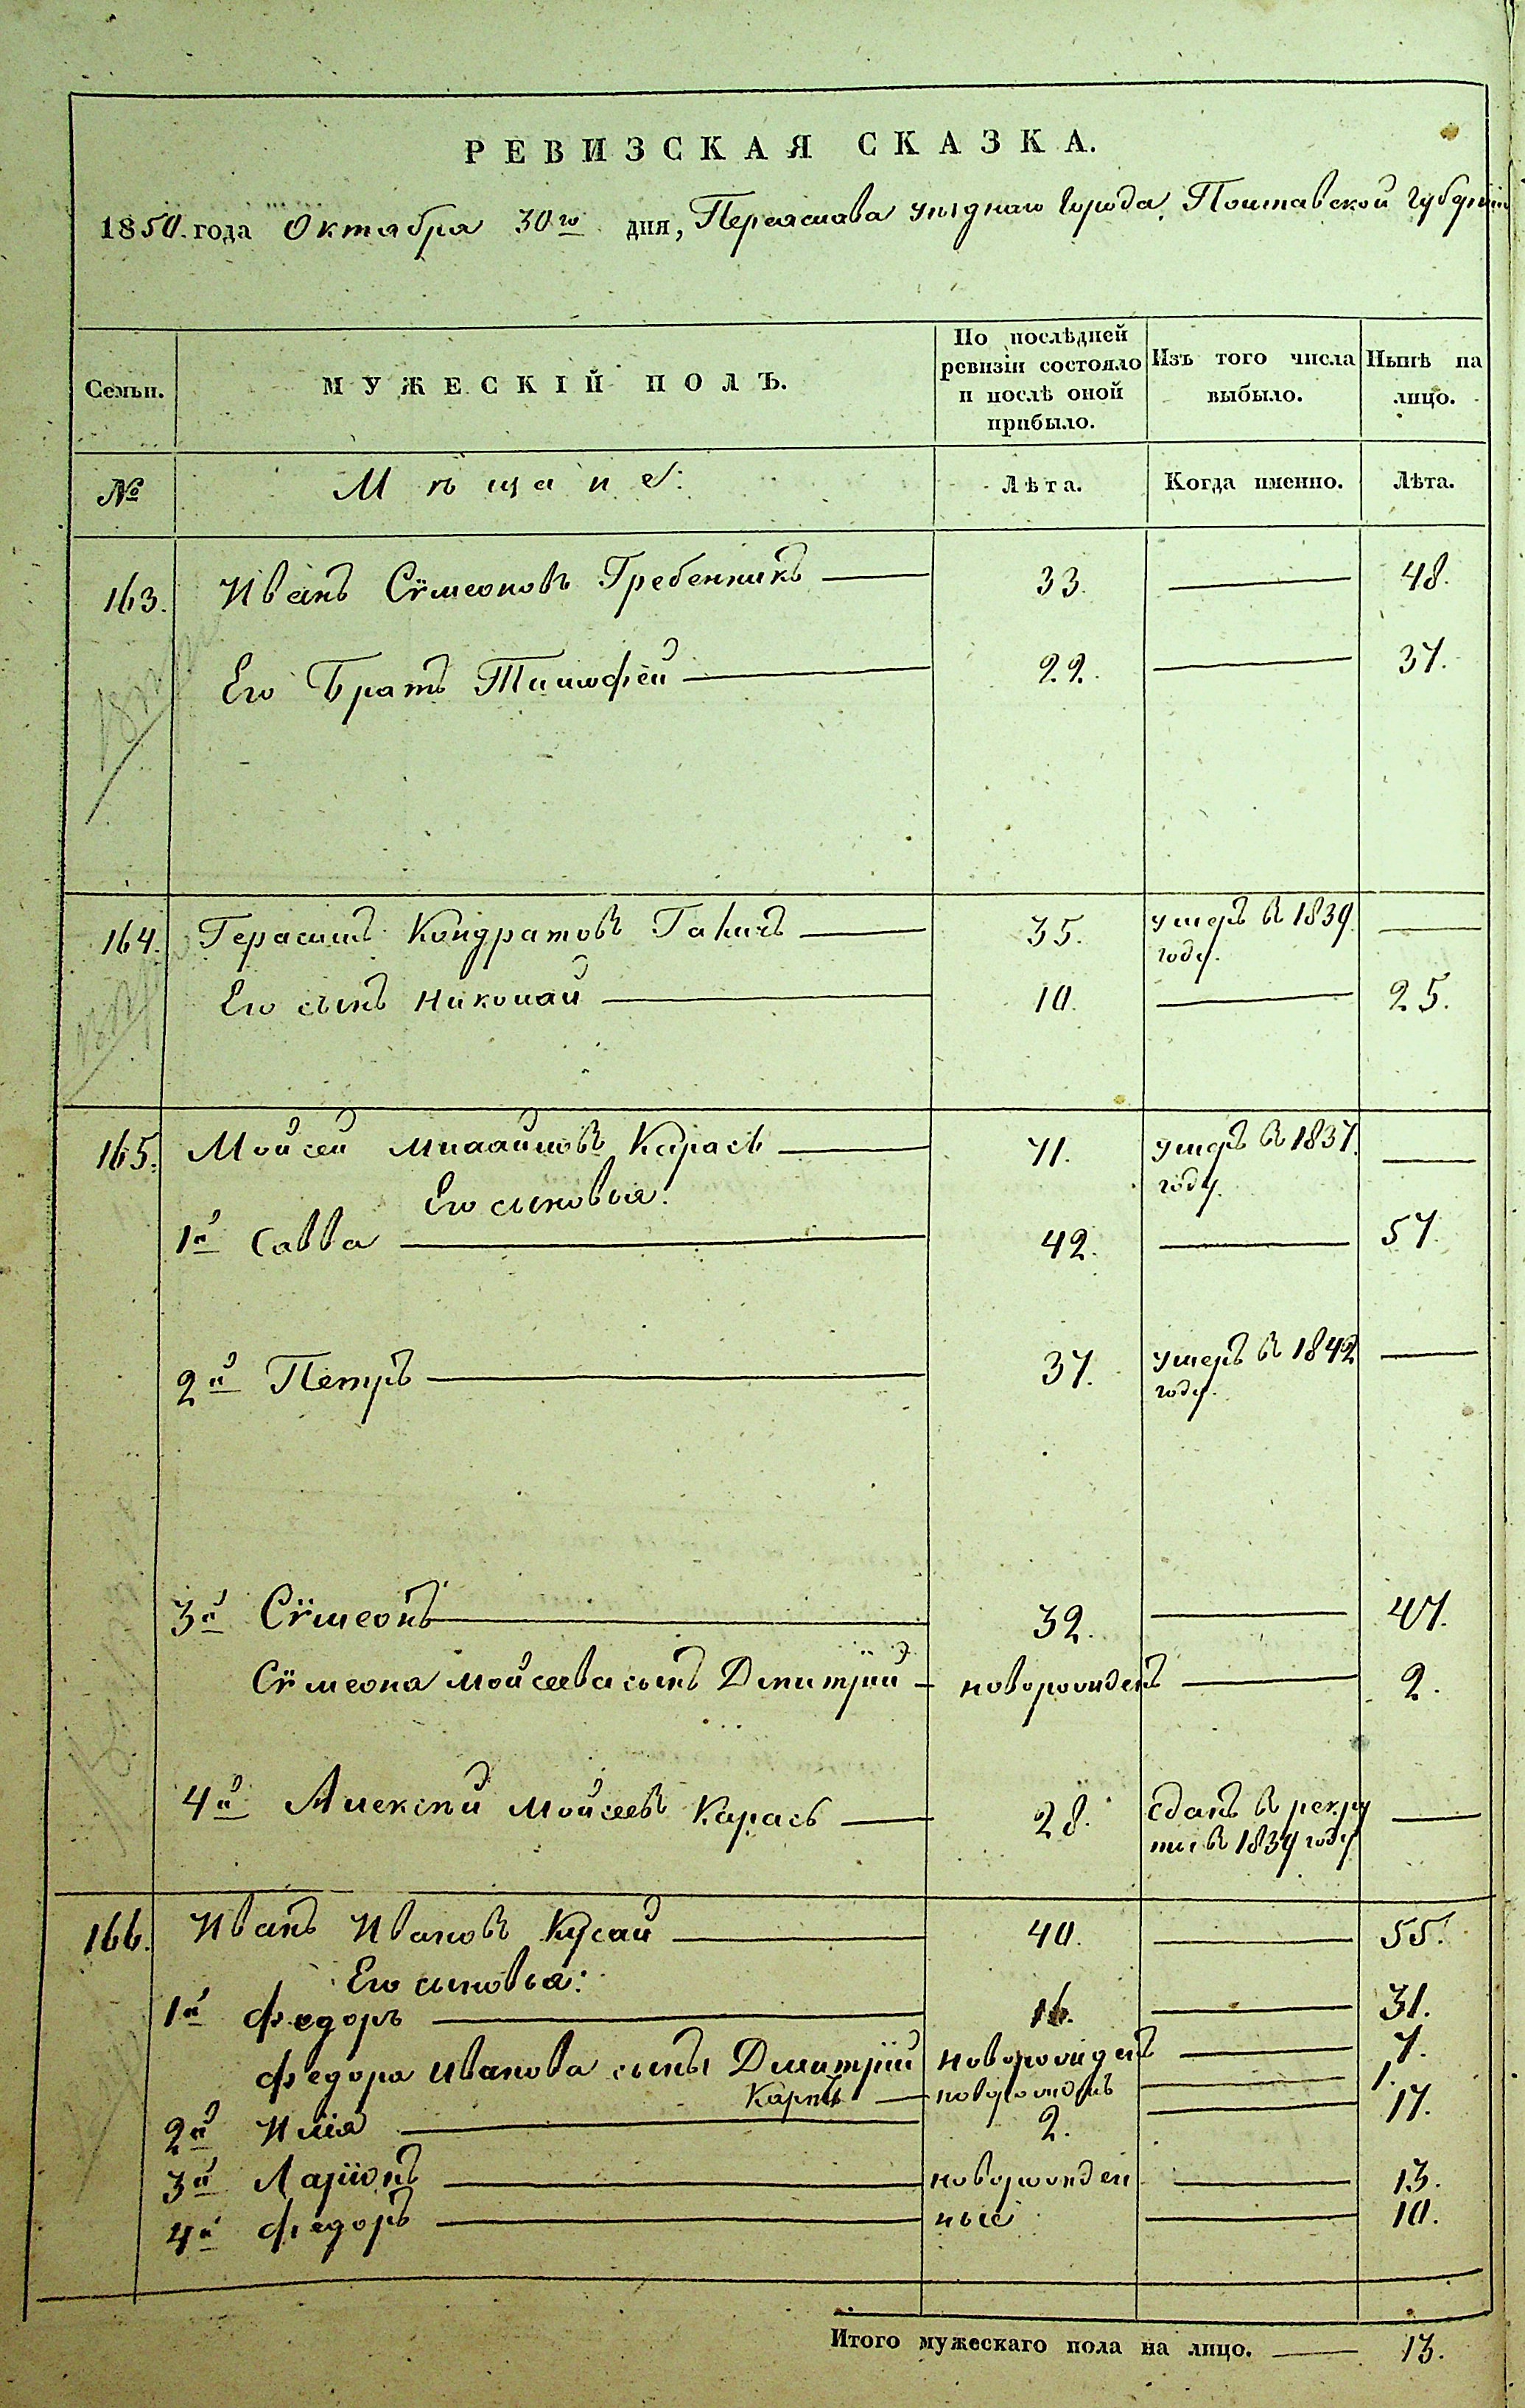 РЕВИЗСКАЯ СКАЗКА.
1850. года Октября 30го дня, Переяслава уѣзднаго Города, Полтавской Губерніи
Семьи. МУЖЕСКІЙ ПОЛЪ. По послѣдней ревизіи состояло и послѣ оной прибыло. Изъ того числа выбыло. Нынѣ на лицо.
№ Мѣщане: Лѣта. Когда именно. Лѣта.
163. Иванъ Сѵмеоновъ Гребенникъ — 33. — 48.
Его Братъ Тимофей — 22. — 37.
164. Герасимъ Кондратовъ — 35. умеръ в 1839 году. —
Его сынъ Николай — 10. — 25.
165. Мойсей Михайловъ Карась — 71. умеръ в 1837. году. —
Его сыновья:
1й Савва — 42. — 57.
2й Петръ — 37. умеръ в 1842 году. —
3й Сѵмеонъ — 32. — 47.
Сѵмеона Мойсеева сынъ Дмитрій — новорожденъ — 2.
4й Алексѣй Мойсеевъ Карась — 28. сданъ в рекруты в 1839 году —
166. Иванъ Ивановъ Кусай — 40. — 55.
Его сыновья:
1й Федоръ — 16. — 31.
Федора Иванова сыны Дмитрій новорожденъ — 7.
Карпъ — новорожденъ — 1.
2й Илія — 2. — 17.
3й Ларіонъ — новорожден — 13.
4й Федоръ — ные — 10.
Итого мужескаго пола на лицо. — 13.